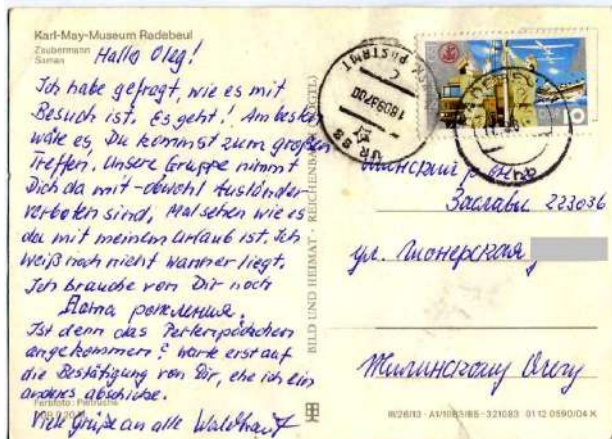 Karl-May-Museum Radebeul
Zaubermann
Saman
Hallo Oleg!
Ich habe gefragt, wie es mit
Besuch ist. Es geht! Am besten
wäre es, Du kommst zum großen
Treffen. Unsere Gruppe nimmt
Dich da mit - obwohl Ausländer
verboten sind, Mal sehen wie es
da mit meinem Urlaub ist. Ich
weiß noch nicht wann er liegt.
Ich brauche von Dir noch
Дата рождения.
Ist denn das Perlenpäckchen
angekommen? Warte erst auf
die Bestätigung von Dir, ehe ich ein
anderes abschicke.
Viele Grüße an alle
Farbfoto:
BILD UND HEIMAT · REICHENBACH (VOGTL)
III/26/13 · A1/1983/85 - 321083 01 12 0590/04 K
DDR
10
Минский
Заславль 223036
ул. Пионерская
Жилинскому Олегу